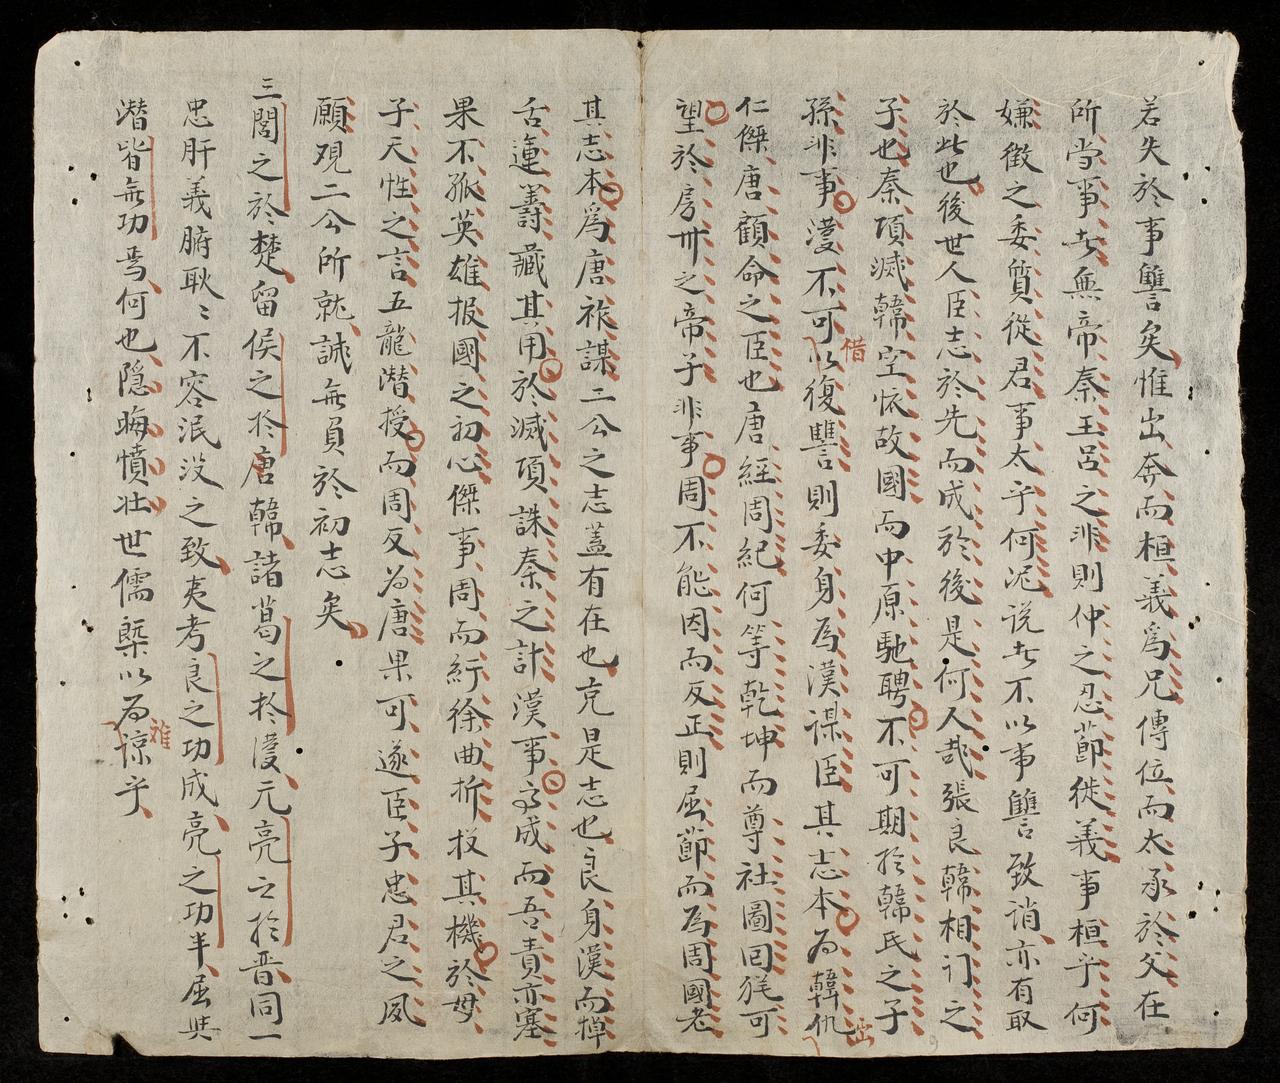 若失於事讐矣惟出奔而桓義爲兄傳位而太承於父在
所当事者無帝秦王呂之非則仲之忍節徙義事桓乎何
嫌徵之委質從君事太乎何泥说者不以事讐致誚亦有取
於此也後世人臣志於先而成於後是何人哉張良韓相门之
子也秦項滅韓空怀故國而中原馳聘不可期於韓氏之子
孫非事漢不可以復讐則委身為漢謀臣其志本为韓仇
借
出
仁傑唐顧命之臣也唐經周紀何等乾坤而尊社圖囘猶可
望於房州之帝子非事周不能因而反正則屈節而為周國老
其志本爲唐祚謀二公之志盖有在也克是志也良身漢而掉
舌運籌藏其用於滅項誅秦之計漢事方成而吾責亦塞
果不孤英雄报國之初心傑事周而紆徐曲折投其機於母
子天性之言五龍潜授而周反为唐果可遂臣子忠君之夙
願覌二公所就誠無負於初志矣
三閭之於楚留侯之於唐韓諸葛之於漢元亮之於晋同一
忠肝義腑耿〻不容泯没之致夷考良之功成亮之功半屈與
潜皆無功焉何也隐晦憤壮世儒槩以为諒乎
雅